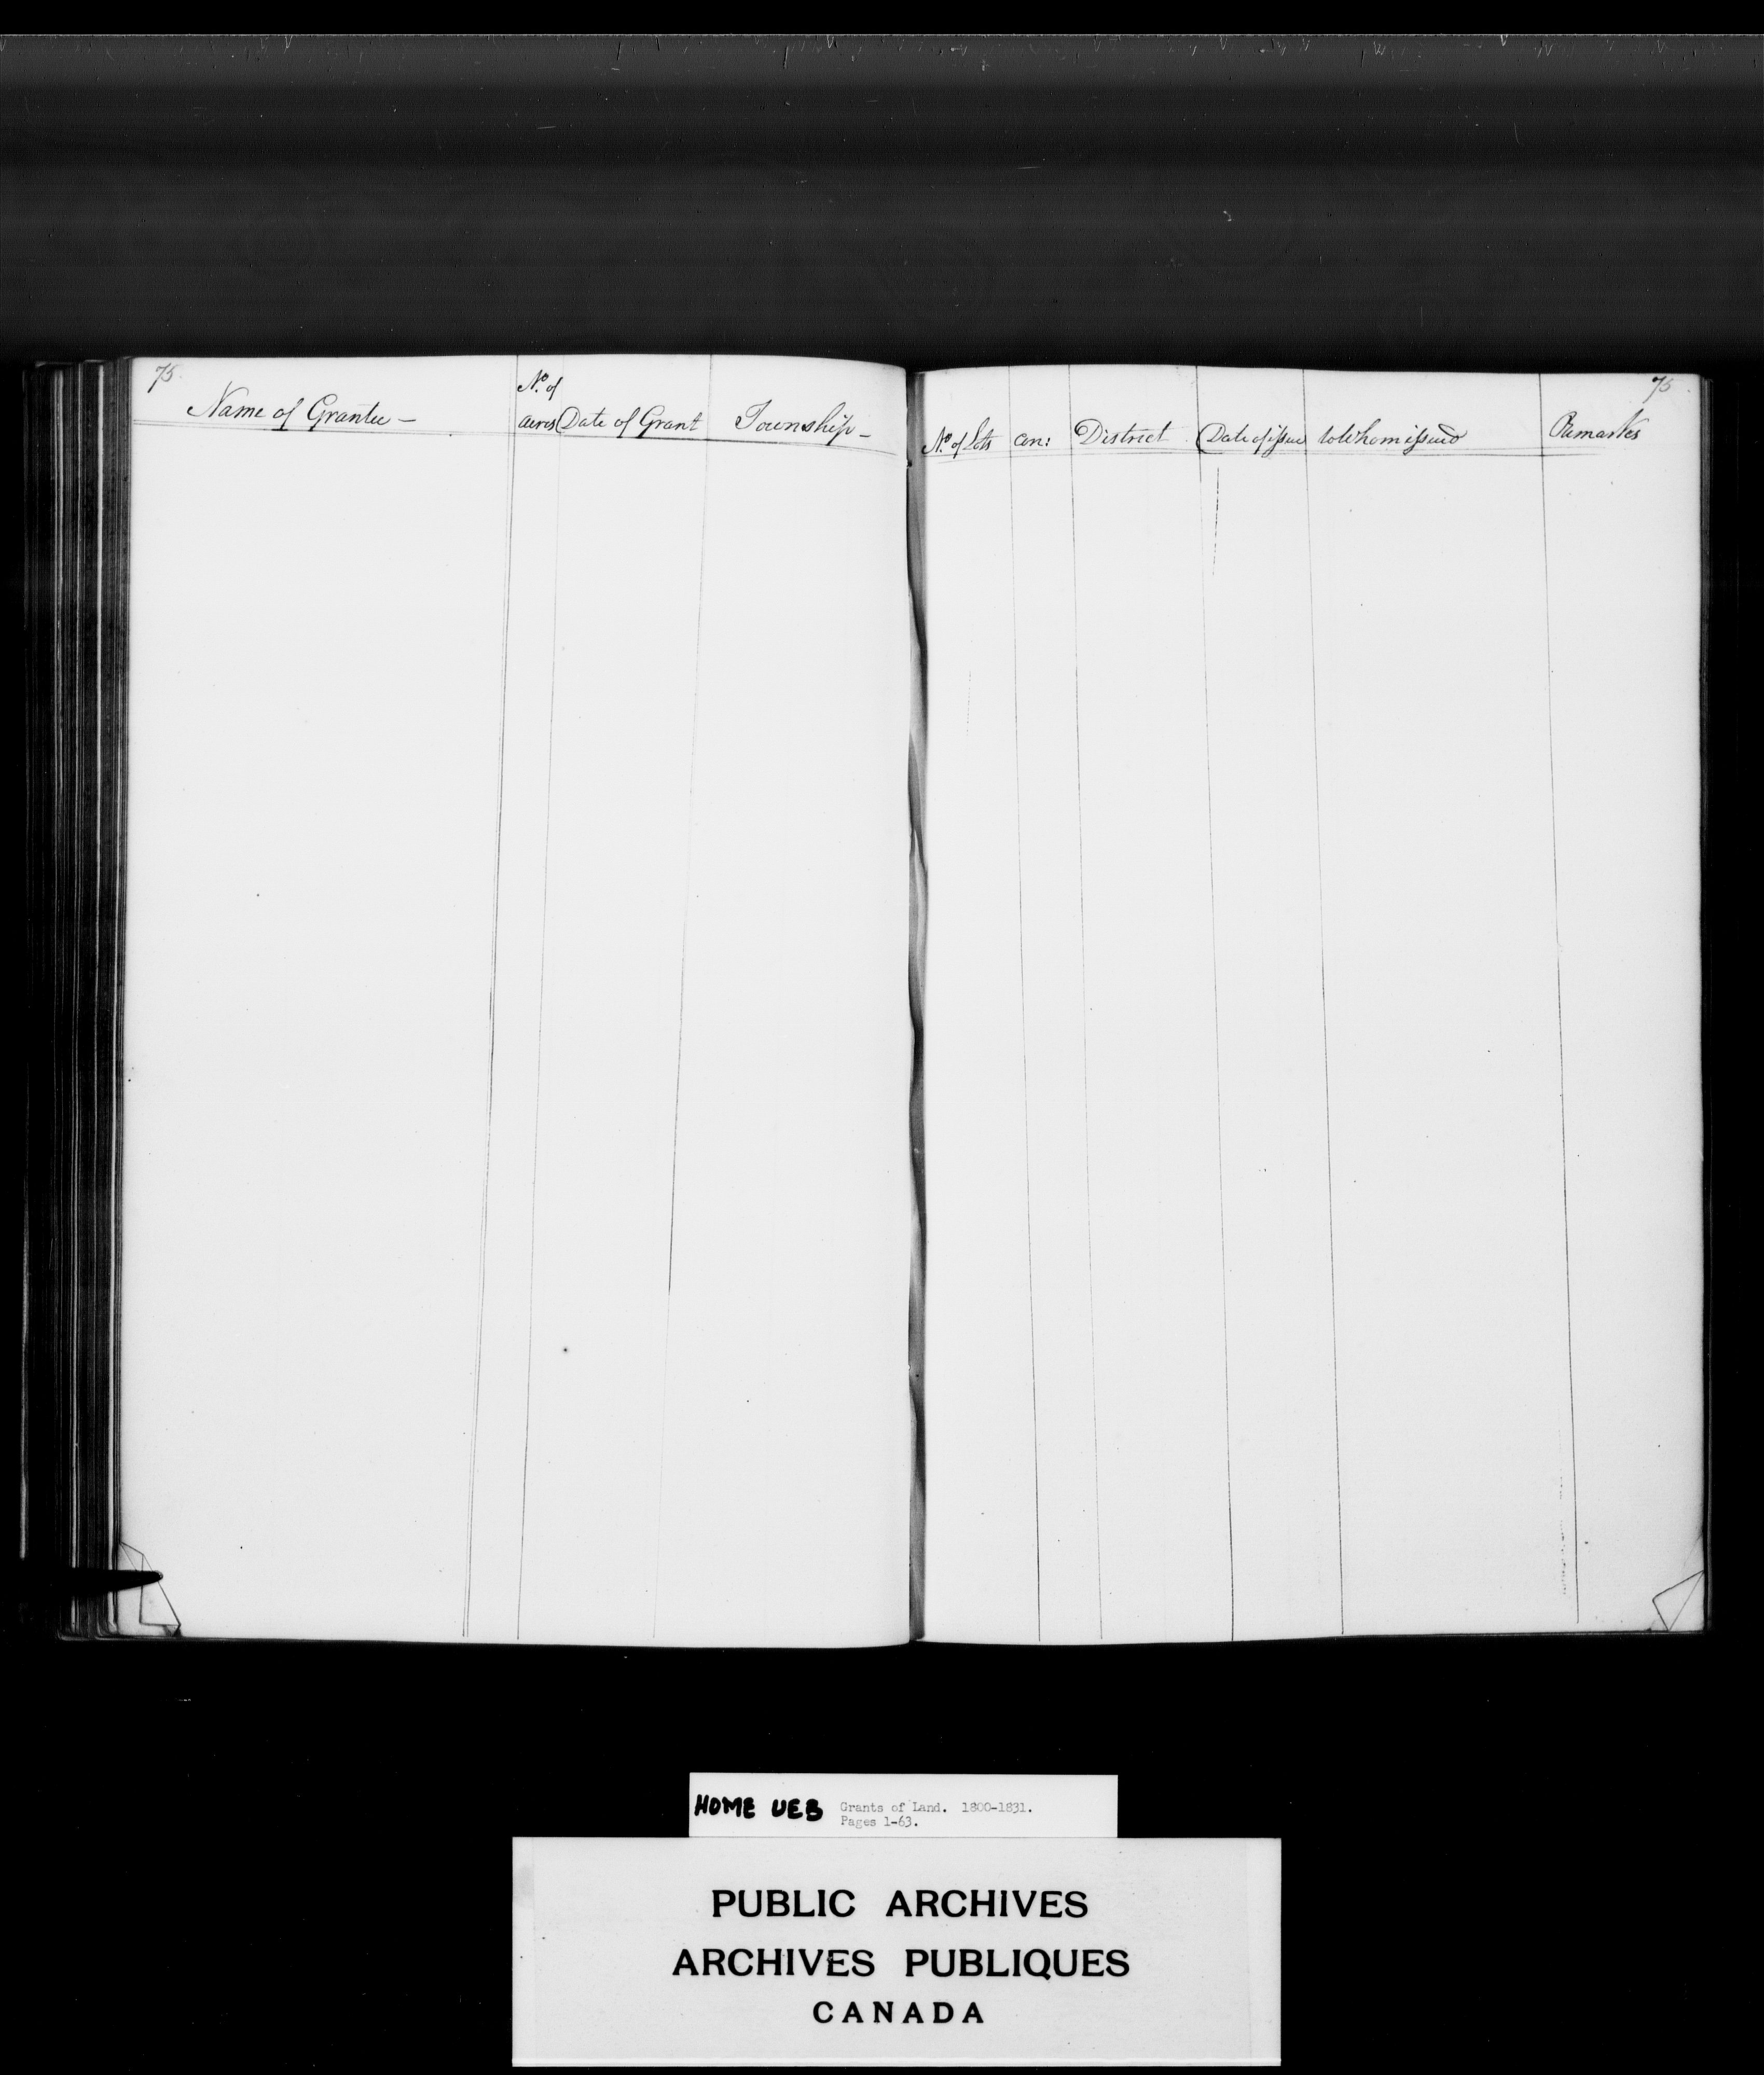 75
75
Name of Grantee — No. of acres Date of Grant Township —
No. of Lots Con: District Date of issue to Whom issued Remarks
HOME UEB Grants of Land. 1800-1831.
Pages 1-63.
PUBLIC ARCHIVES
ARCHIVES PUBLIQUES
CANADA